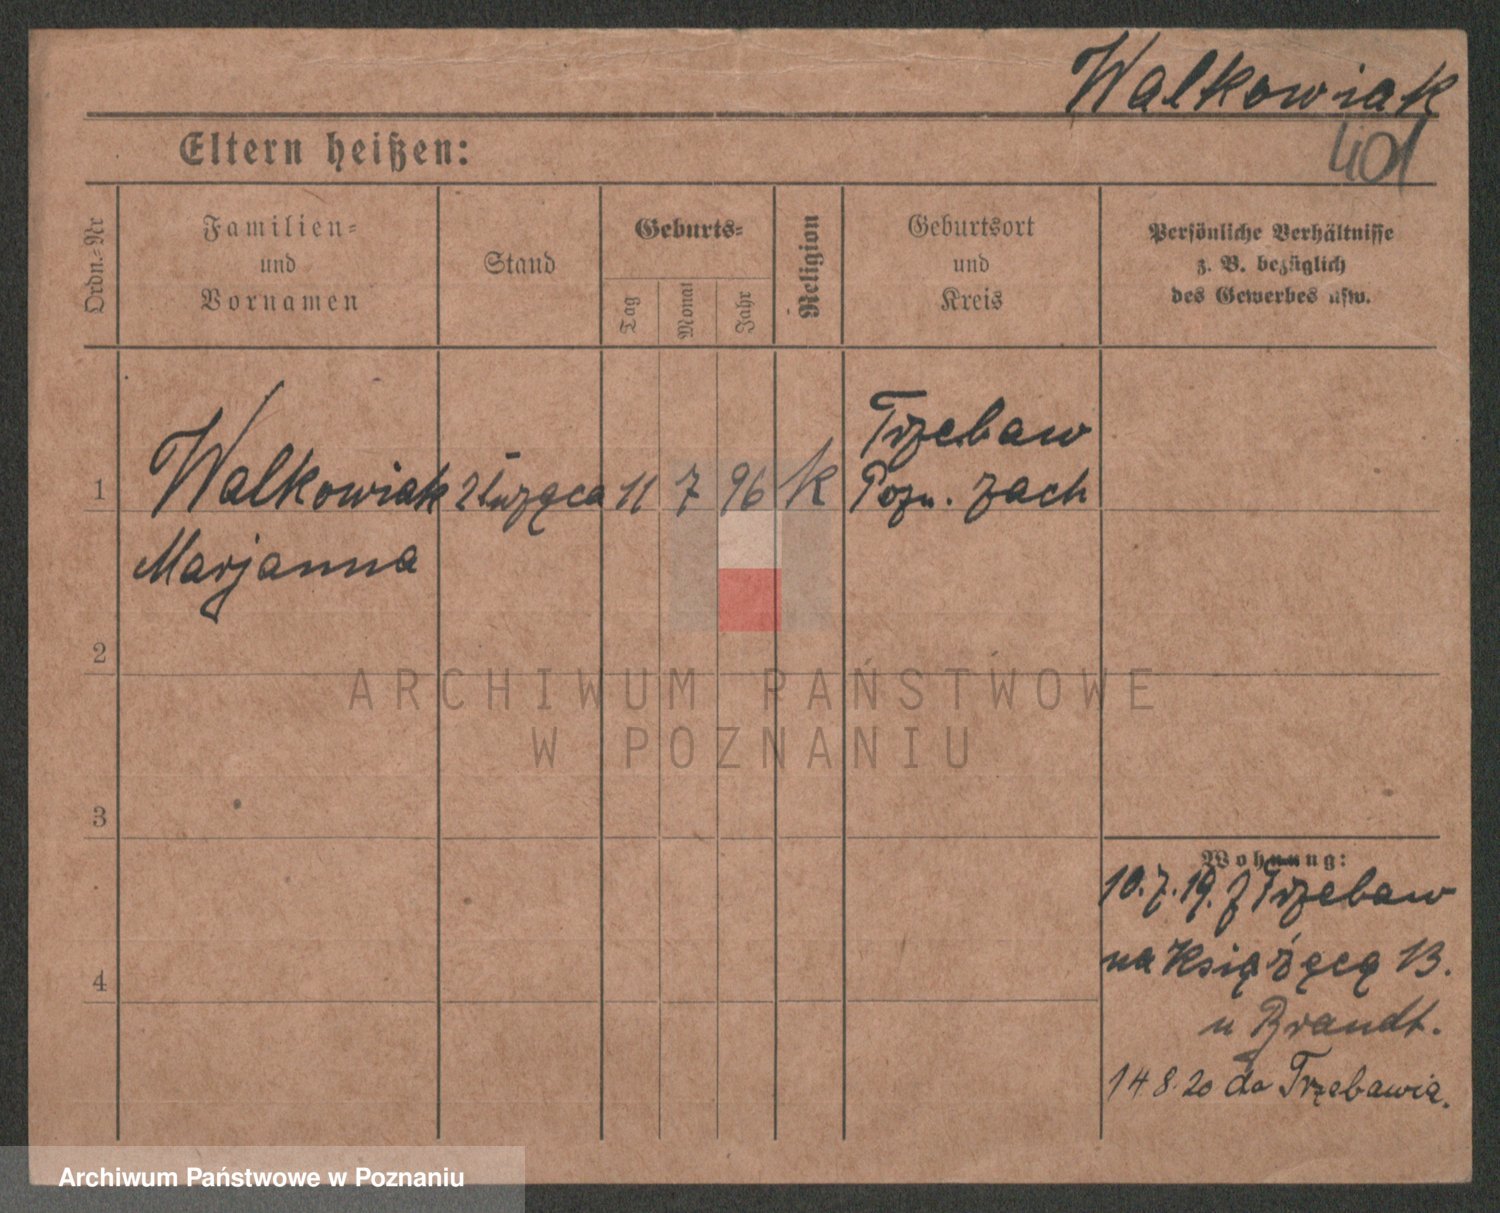 Walkowiak
401
Eltern heißen:
Ordn.-Nr
Familien-
und
Vornamen
Stand
Geburts-
Tag
Monat
Jahr
Religion
Geburtsort
und
Kreis
Persönliche Verhältnisse
z. B. bezüglich
des Gewerbes usw.
1
Walkowiak
Marjanna
służąca
11
7
96
k
Trzebaw
Pozn. zach
2
3
4
Wohnung:
10.7.19. z Trzebaw
na Książęcą 13.
u Brandt.
14 8.20 do Trzebawia.
ARCHIWUM PAŃSTWOWE
W POZNANIU
Archiwum Państwowe w Poznaniu